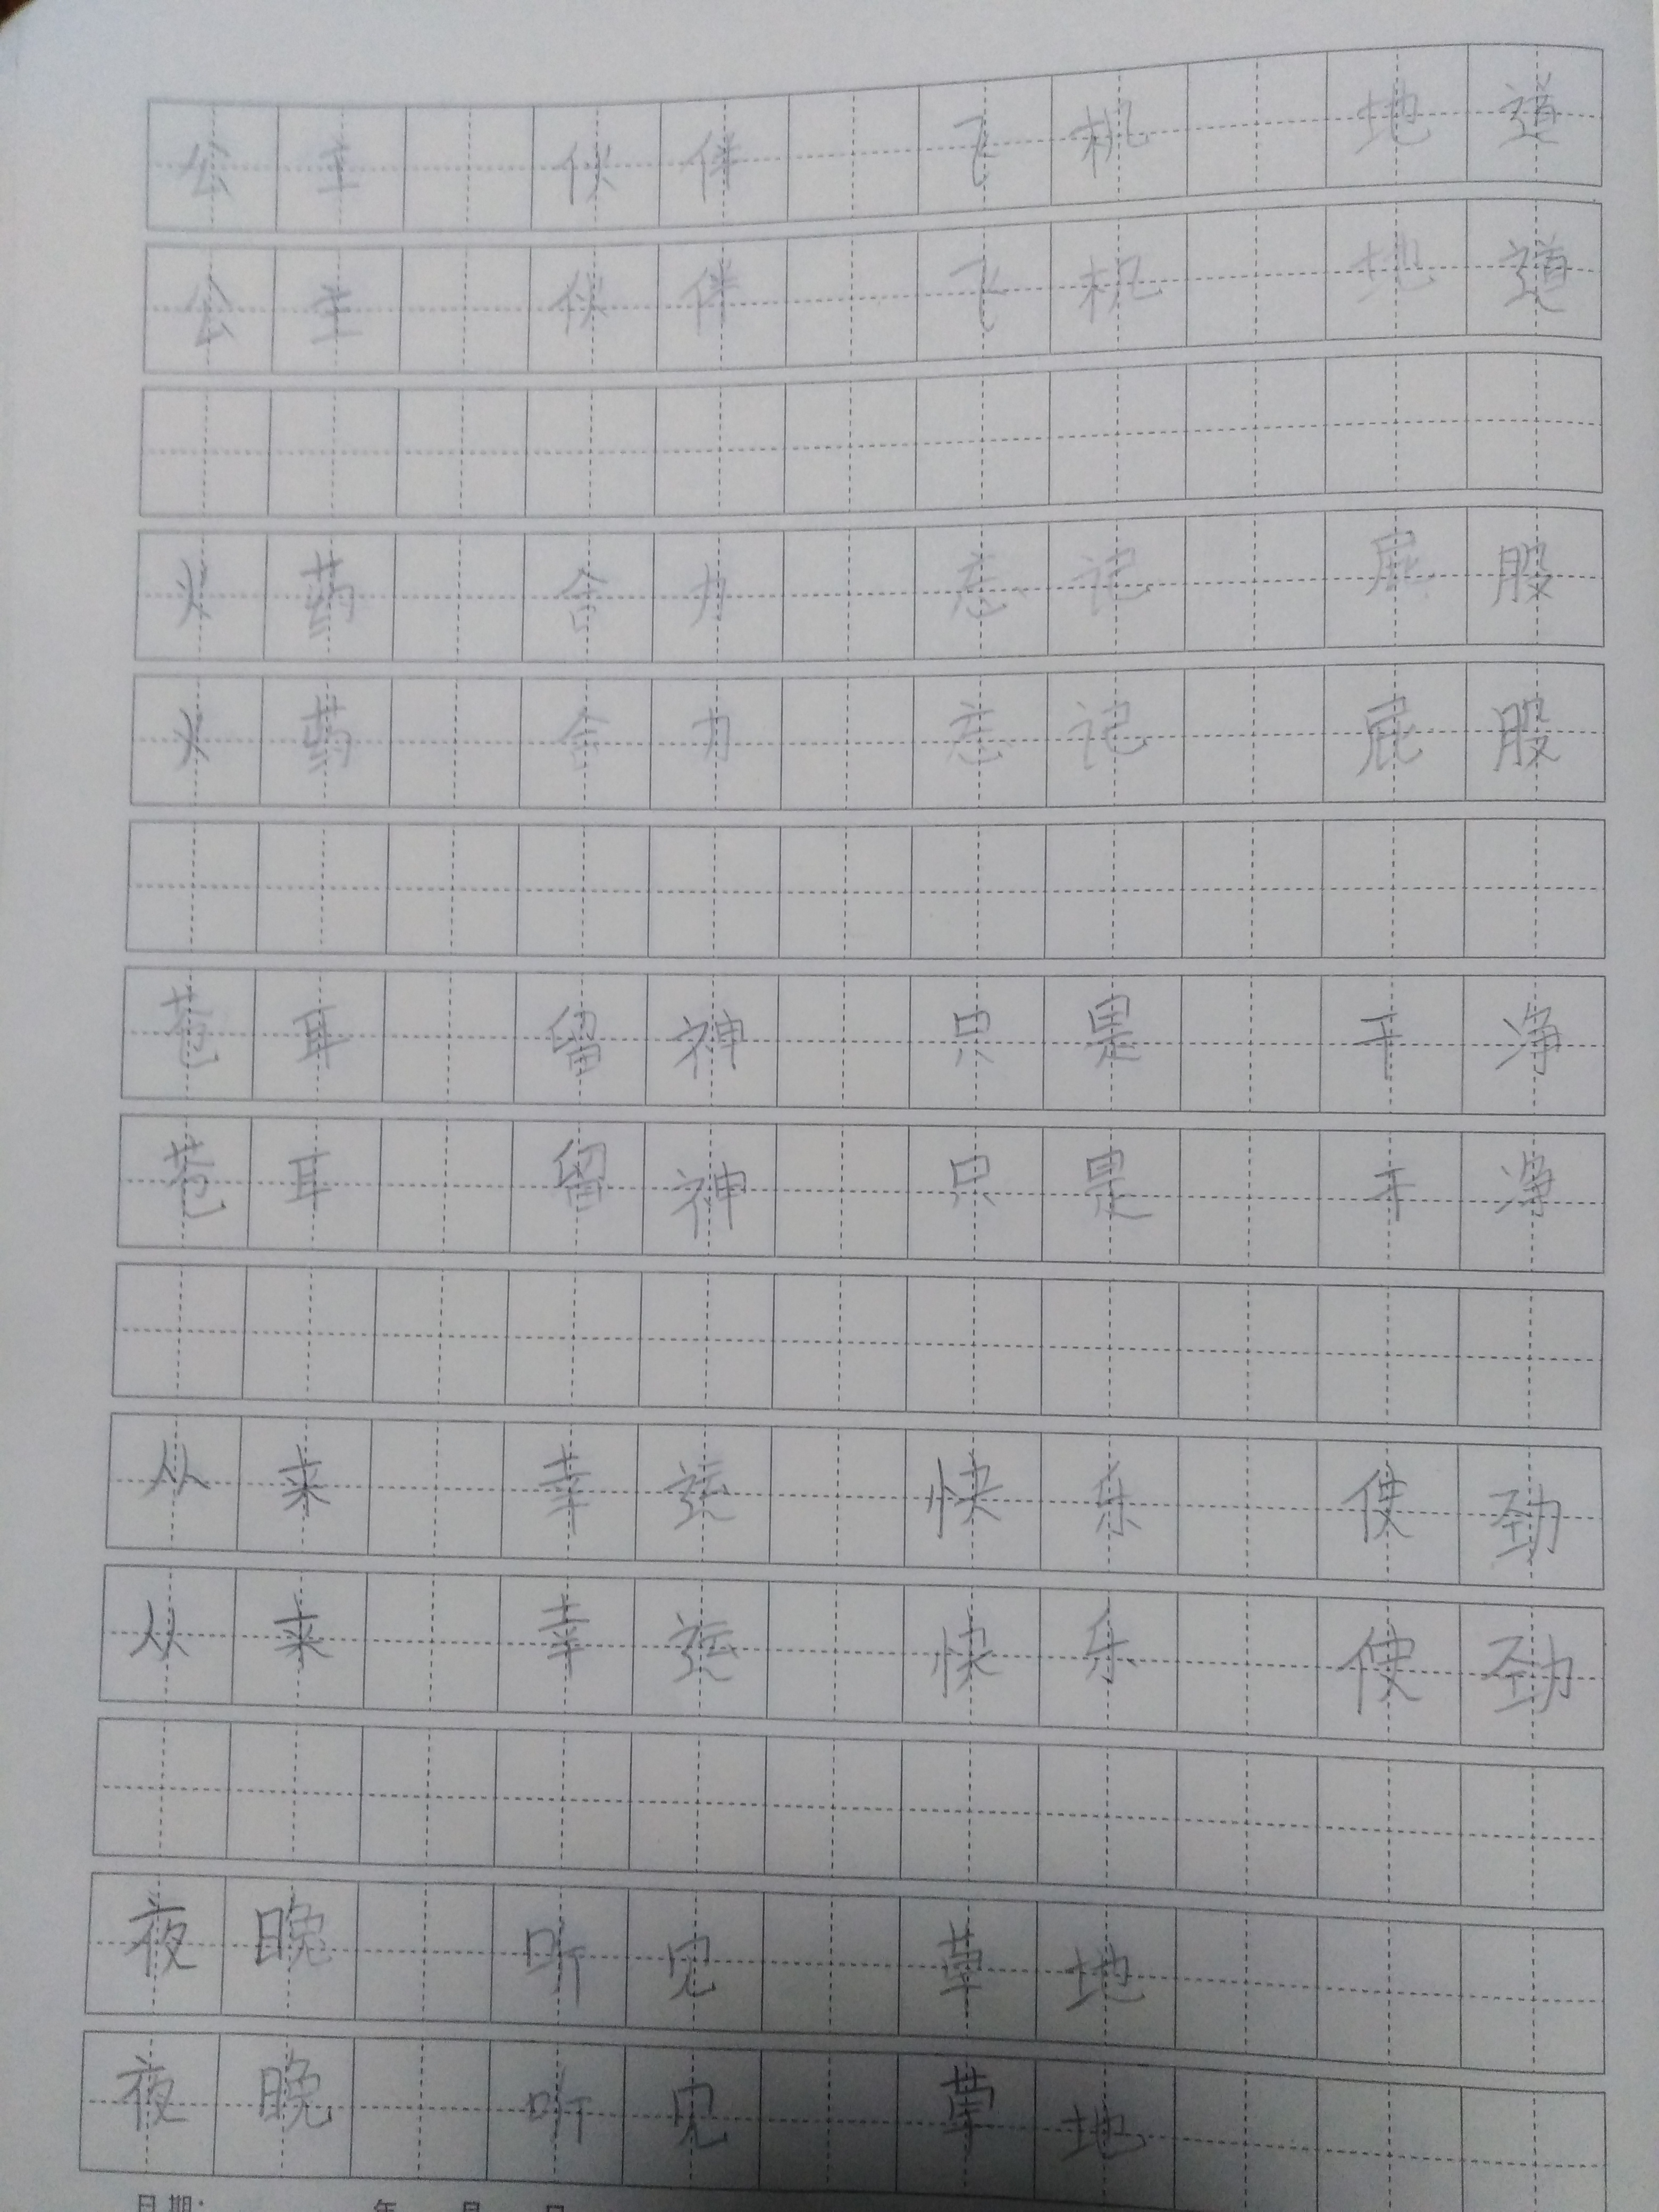 公主 伙伴 飞机 地道
公主 伙伴 飞机 地道
火药 合力 忘记 屁股
火药 合力 忘记 屁股
苍耳 留神 只是 干净
苍耳 留神 只是 干净
从来 幸运 快乐 使劲
从来 幸运 快乐 使劲
夜晚 听见 草地
夜晚 听见 草地
日期: 年 月 日